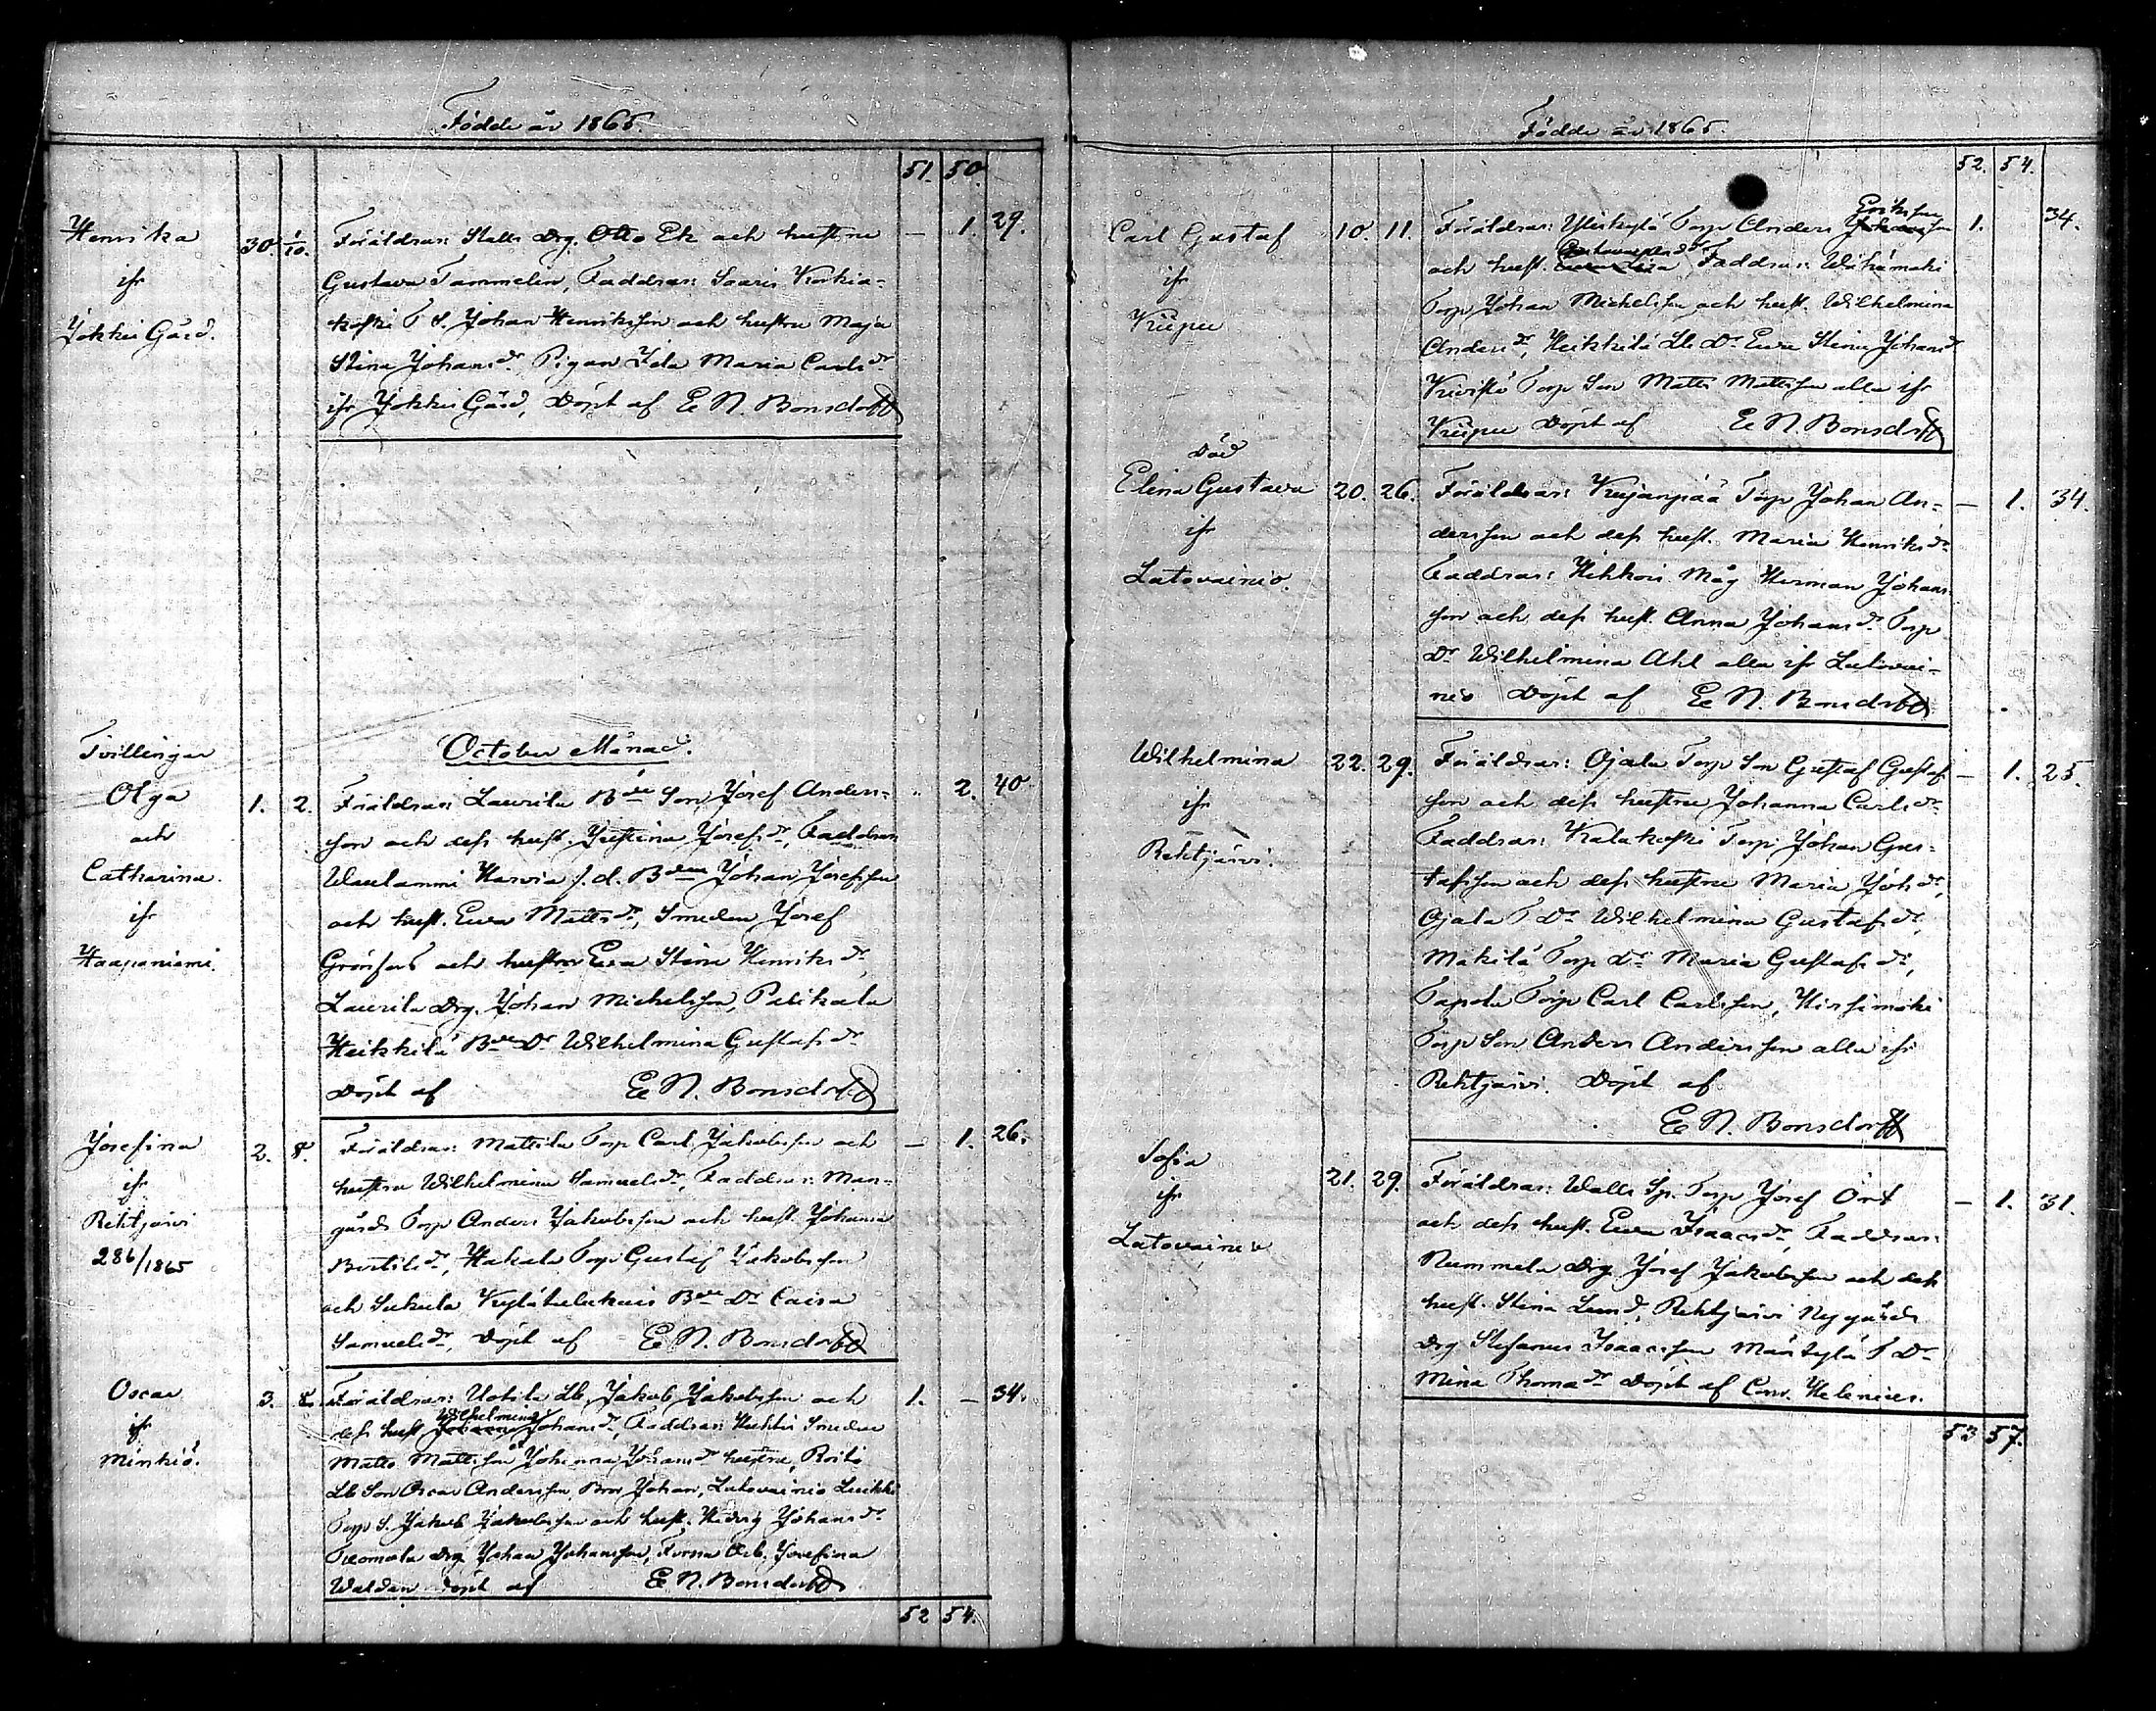 Födde år 1865.
51. 50.
Henrika
ifr
Jokkis Gård.
30. 1/10.
Föräldrar: Stalls Drg. Otto Ek och hustru
Gustava Tammelin, Faddrar: Saaris Korkia-
koski T S. Johan Henriksson och hustru Maja
Stina Johansdr Pigan Ida Maria Carlsdr
ifr Jokkis Gård, Döpt af E N. Bonsdorff
— 1. 29.
October Månad.
Tvillingar
Olga
och
Catharina.
ifr
Haapaniemi.
1. 2.
Föräldrar: Laurila Bde Son Josef Anders-
son och dess hust. Justina Josefsdr, Faddrar
Waulammi Harvia f.d. Bden Johan Josefsson
och hust. Ewa Mattsdr, Smeden Josef
Grönfors och hustru Ewa Stina Henriksdr,
Laurila Drg. Johan Michelsson, Palikala
Heikkilä Bde Dr Wilhelmina Gustafsdr
Döpt af E N. Bonsdorff
" 2. 40
Josefina
ifr
Rehtjärvi
286/1865
2. 8.
Föräldrar: Mattila Torp Carl Jakobsson och
hustru Wilhelmina Samuelsdr, Faddrar: Män-
gårds Torp Anders Jakobsson och hust. Johanna
Bertilsdr, Hakala Torp Gustaf Jakobsson
och Sukula Bde Dr Caisa
Samuelsdr, Döpt af E N. Bonsdorff
— 1. 26.
Oscar
ifr
Minkiö.
3. 8.
Föräldrar: Uotila Lb. Jakob Jakobsson och
dess hust Wilhelmina Johansdr, Faddrar: Huhtis Smeden
Matts Mattsson Johanna Johansdr hustru, Roito
Lb Son Oscar Andersson, Bror Johan, Latovainio Luikki
Torp S. Jakob Jakobsson och hust. Hedvig Johansdr
Tuomola Drg Johan Johansson, Forssa Arb. Josefina
Walden Döpt af E N. Bonsdorff
1. — 34.
52 54.
Födde år 1865.
52. 54.
Carl Gustaf
ifr
Kiipu
10. 11.
Föräldrar: Ylikylä Torp Anders Eriksson
och hust. Faddrar: Wähämäki
Torp Johan Michelsson och hust. Wilhelmina
Andersdr, Heikkilä Lb Dr Ewa Stina Johansdr
Kivistö Torp Son Matts Mattsson alla ifr
Kiipu Döpt af E N. Bonsdorff
1. 34.
Död
Elina Gustava
ifr
Latovainio.
20. 26.
Föräldrar: Kujanpää Torp Johan An-
dersson och dess hust. Maria Henriksdr
Faddrar: Hikkois Måg Herman Johans-
son och dess hust. Anna Johansdr Torp
Dr Wilhelmina Ahl alla ifr Latovai-
nio Döpt af E N. Bonsdorff
— 1. 34.
Wilhelmina
ifr
Rehtjärvi.
22. 29.
Föräldrar: Ojala Torp Son Gustaf Gustafs-
son och dess hustru Johanna Carlsdr
Faddrar: Kalakoski Torp Johan Gus-
tafsson och dess hustru Maria Johsdr,
Ojala T Dr Wilhelmina Gustafsdr,
Mäkilä Torp Dr Maria Gustafsdr,
Tapola Torp Carl Carlsson, Hirsimäki
Torp Son Anders Andersson alla ifr
Rehtjärvi. Döpt af
E N. Bonsdorff
— 1. 25.
Sofia
ifr
Latovainio
21. 29.
Föräldrar: Walls Sp. Torp Josef Ört
och dess hust. Ewa Isaacsdr, Faddrar:
Rummela Drg Josef Jakobsson och dess
hust. Stina Lund, Rehtjärvi Nygårds
Drg Stefanus Isaacsson Mäntylä T Dr
Mina Thomadr Döpt af Conr. Helenius.
— 1. 31.
53 57.